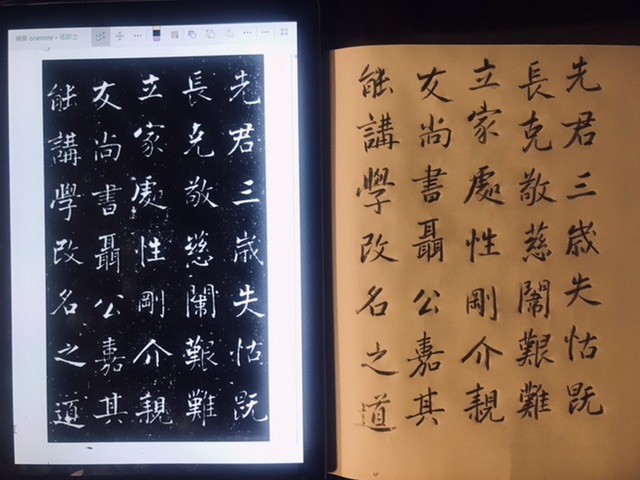 onenote
先君三歲失怙既
長克敬慈闈艱難
立家處性剛介親
友尚書聶公嘉其
能講學改名之道
先君三歲失怙既
長克敬慈闈艱難
立家處性剛介親
友尚書聶公嘉其
能講學改名之道